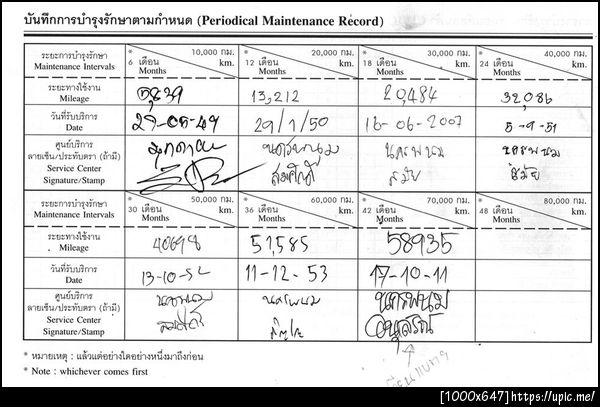 บันทึกการบำรุงรักษาตามกำหนด (Periodical Maintenance Record)
ระยะการบำรุงรักษา
Maintenance Intervals
* 6 เดือน Months 10,000 กม. km.
* 12 เดือน Months 20,000 กม. km.
* 18 เดือน Months 30,000 กม. km.
* 24 เดือน Months 40,000 กม. km.
ระยะทางใช้งาน
Mileage
13,212 20,484 32,086
วันที่รับบริการ
Date
29-05-49 29/1/50 16-06-2007 5-9-51
ศูนย์บริการ
ลายเซ็น/ประทับตรา (ถ้ามี)
Service Center
Signature/Stamp
มุกดาหาร นครพนม นครพนม นครพนม
สมศักดิ์ สมัย สมัย
ระยะการบำรุงรักษา
Maintenance Intervals
* 30 เดือน Months 50,000 กม. km.
* 36 เดือน Months 60,000 กม. km.
* 42 เดือน Months 70,000 กม. km.
* 48 เดือน Months 80,000 กม. km.
ระยะทางใช้งาน
Mileage
40698 51,585 58935
วันที่รับบริการ
Date
13-10-52 11-12-53 17-10-11
ศูนย์บริการ
ลายเซ็น/ประทับตรา (ถ้ามี)
Service Center
Signature/Stamp
นครพนม นครพนม นครพนม
* หมายเหตุ : แล้วแต่อย่างใดอย่างหนึ่งมาถึงก่อน
* Note : whichever comes first
[1000x647]https://upic.me/